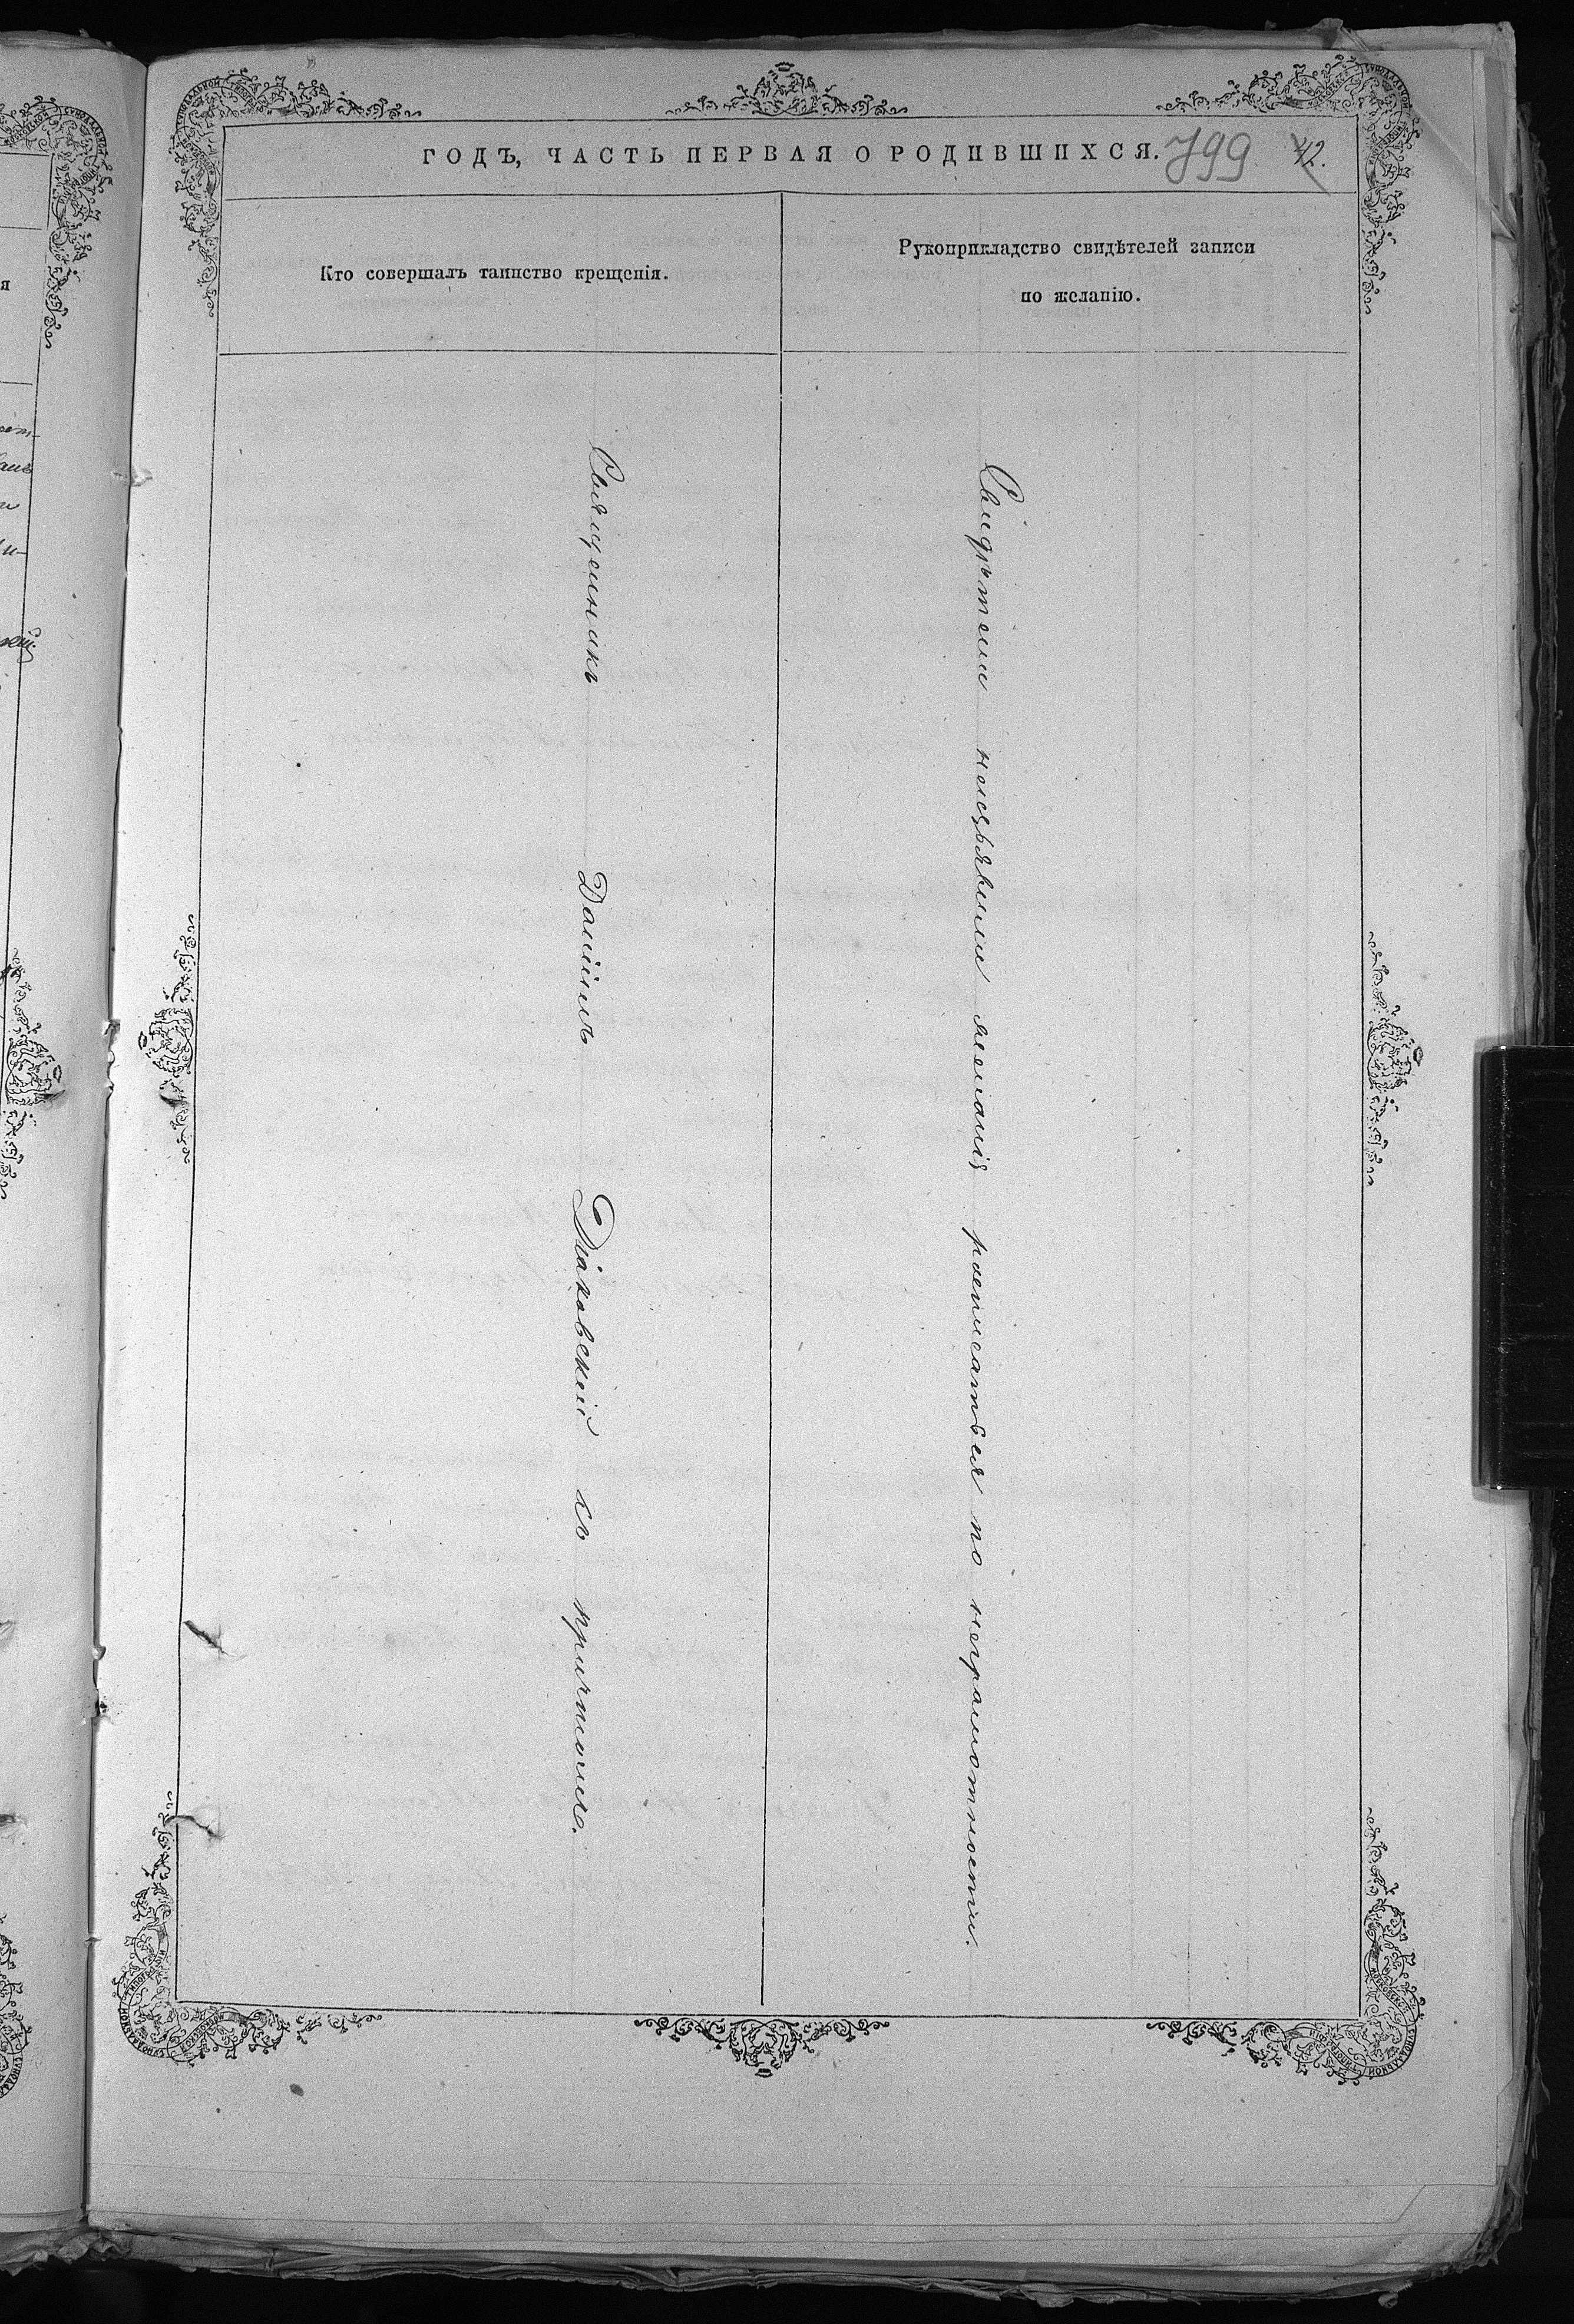 ГОДЪ, ЧАСТЬ ПЕРВАЯ О РОДИВШИХСЯ. 799 42.
Кто совершалъ таинство крещенія.
Рукоприкладство свидѣтелей записи
по желанію.
Священникъ Даніилъ Діаковскій съ причтомъ.
Свидѣтели неизъявили желанія росписаться по неграмотности.